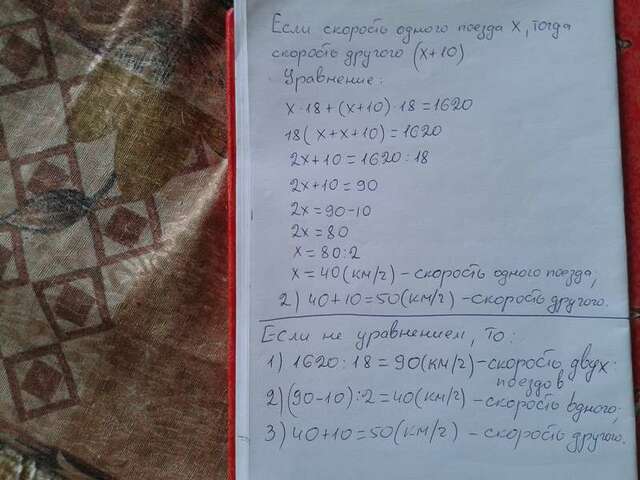 Если скорость одного поезда x, тогда
скорость другого (x+10)
Уравнение:
x·18+(x+10)·18=1620
18(x+x+10)=1620
2x+10=1620:18
2x+10=90
2x=90-10
2x=80
x=80:2
x=40(км/г)-скорость одного поезда,
2) 40+10=50(км/г)-скорость другого.
Если не уравнением, то:
1) 1620:18=90(км/г)-скорость двух
поездов
2) (90-10):2=40(км/г)-скорость одного;
3) 40+10=50(км/г)-скорость другого.